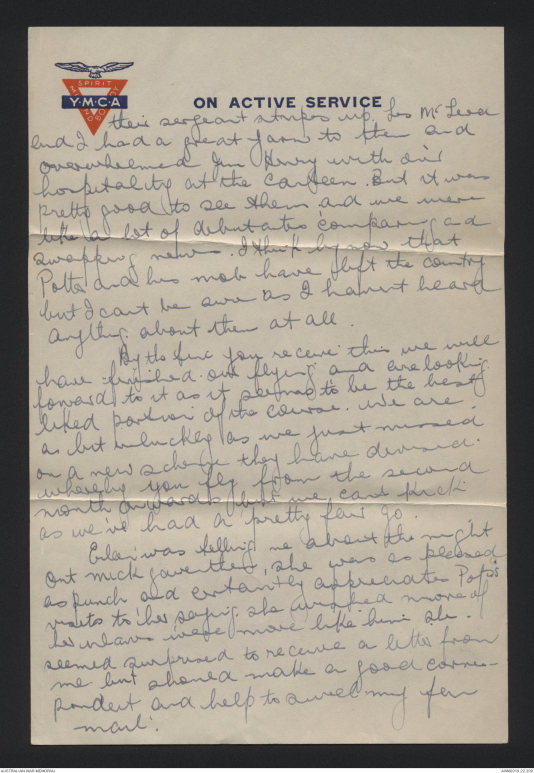 SPIRIT
MIND
BODY
Y·M·C·A
ON ACTIVE SERVICE
their sergeant stripes up. Les McLeod
and I had a great yarn to them and
overwhelmed Jim Henry with our
hospitality at the canteen. But it was
pretty good to see them and we were
like a lot of debutantes comparing and
swapping news. I think by now that
Potts and his mob have left the country
but I cant be sure as I havent heard
anything about them at all.
By the time you receive this we will
have finished our flying and are looking
forward to it as it seems to be the best
liked portion of the course. We are
a bit unlucky as we just missed
on a new scheme they have devised
whereby you fly from the second
month onwards but we cant kick
as we've had a pretty fair go.
was telling me about the night
out Mick gave them, she was as pleased
as punch and certainly appreciates Potts's
visits to her saying she wished more of
her inlaws were more like him. She
seemed surprised to receive a letter from
me but should make a good corres-
pondent and help to swell my few
mail.
AUSTRALIAN WAR MEMORIAL